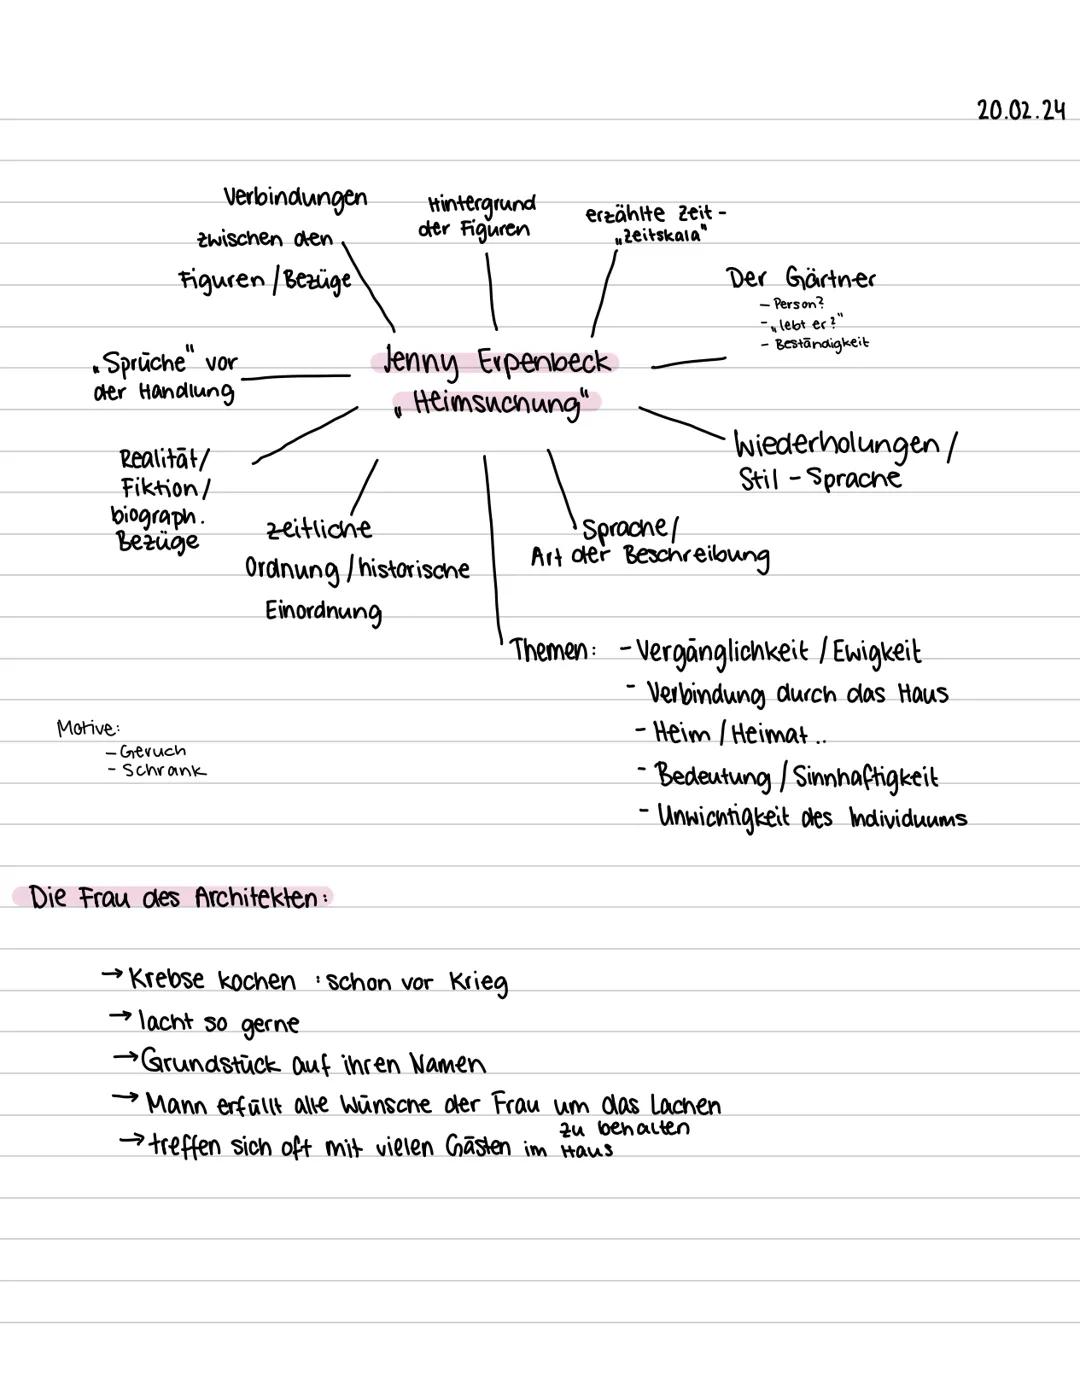 20.02.24
Verbindungen
zwischen den
Figuren / Bezüge
Hintergrund
der Figuren
erzählte Zeit -
„Zeitskala"
Der Gärtner
- Person?
- „lebt er?"
- Beständigkeit
„Sprüche" vor
der Handlung
Jenny Erpenbeck
„Heimsuchung"
Wiederholungen /
Stil - Sprache
Realität/
Fiktion/
biograph.
Bezüge
zeitliche
Ordnung / historische
Einordnung
Sprache/
Art der Beschreibung
Themen: - Vergänglichkeit / Ewigkeit
- Verbindung durch das Haus
- Heim / Heimat ..
- Bedeutung / Sinnhaftigkeit
- Unwichtigkeit des Individuums
Motive:
- Geruch
- Schrank
Die Frau des Architekten:
→ Krebse kochen : schon vor Krieg
→ lacht so gerne
→ Grundstück auf ihren Namen
→ Mann erfüllt alle Wünsche der Frau um das Lachen
zu behalten
→ treffen sich oft mit vielen Gästen im Haus